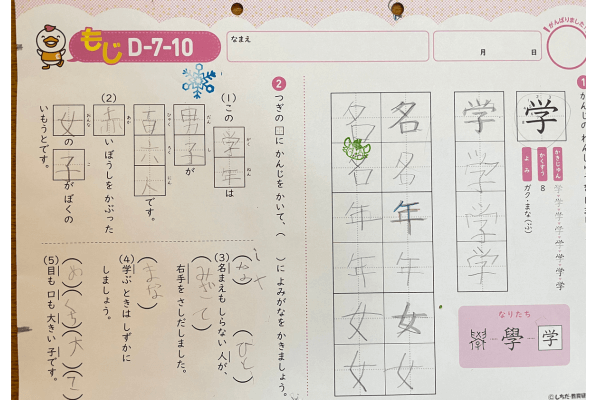 もじ D-7-10
なまえ
月 日
がんばりました!
学
学
学
学
学
かきじゅん
学
かくすう 8
よみ ガク・まな(ぶ)
なりたち
學
学
名 名
名 名
年 年
年 年
女 女
女 女
2 つぎの□に かんじを かいて、( )に よみがなを かきましょう。
(1)この 学年は
がく ねん
男子が
だん し
百六人です。
ひゃく ろく にん
(2)赤いぼうしを かぶった
あか
女の子が ぼくの
おんな こ
いもうとです。
(3)名まえも しらない 人が、
(ひと)
右手を さしだしました。
(みぎて)
(4)学ぶ ときは しずかに
(まな)
しましょう。
(5)目も 口も 大きい 子です。